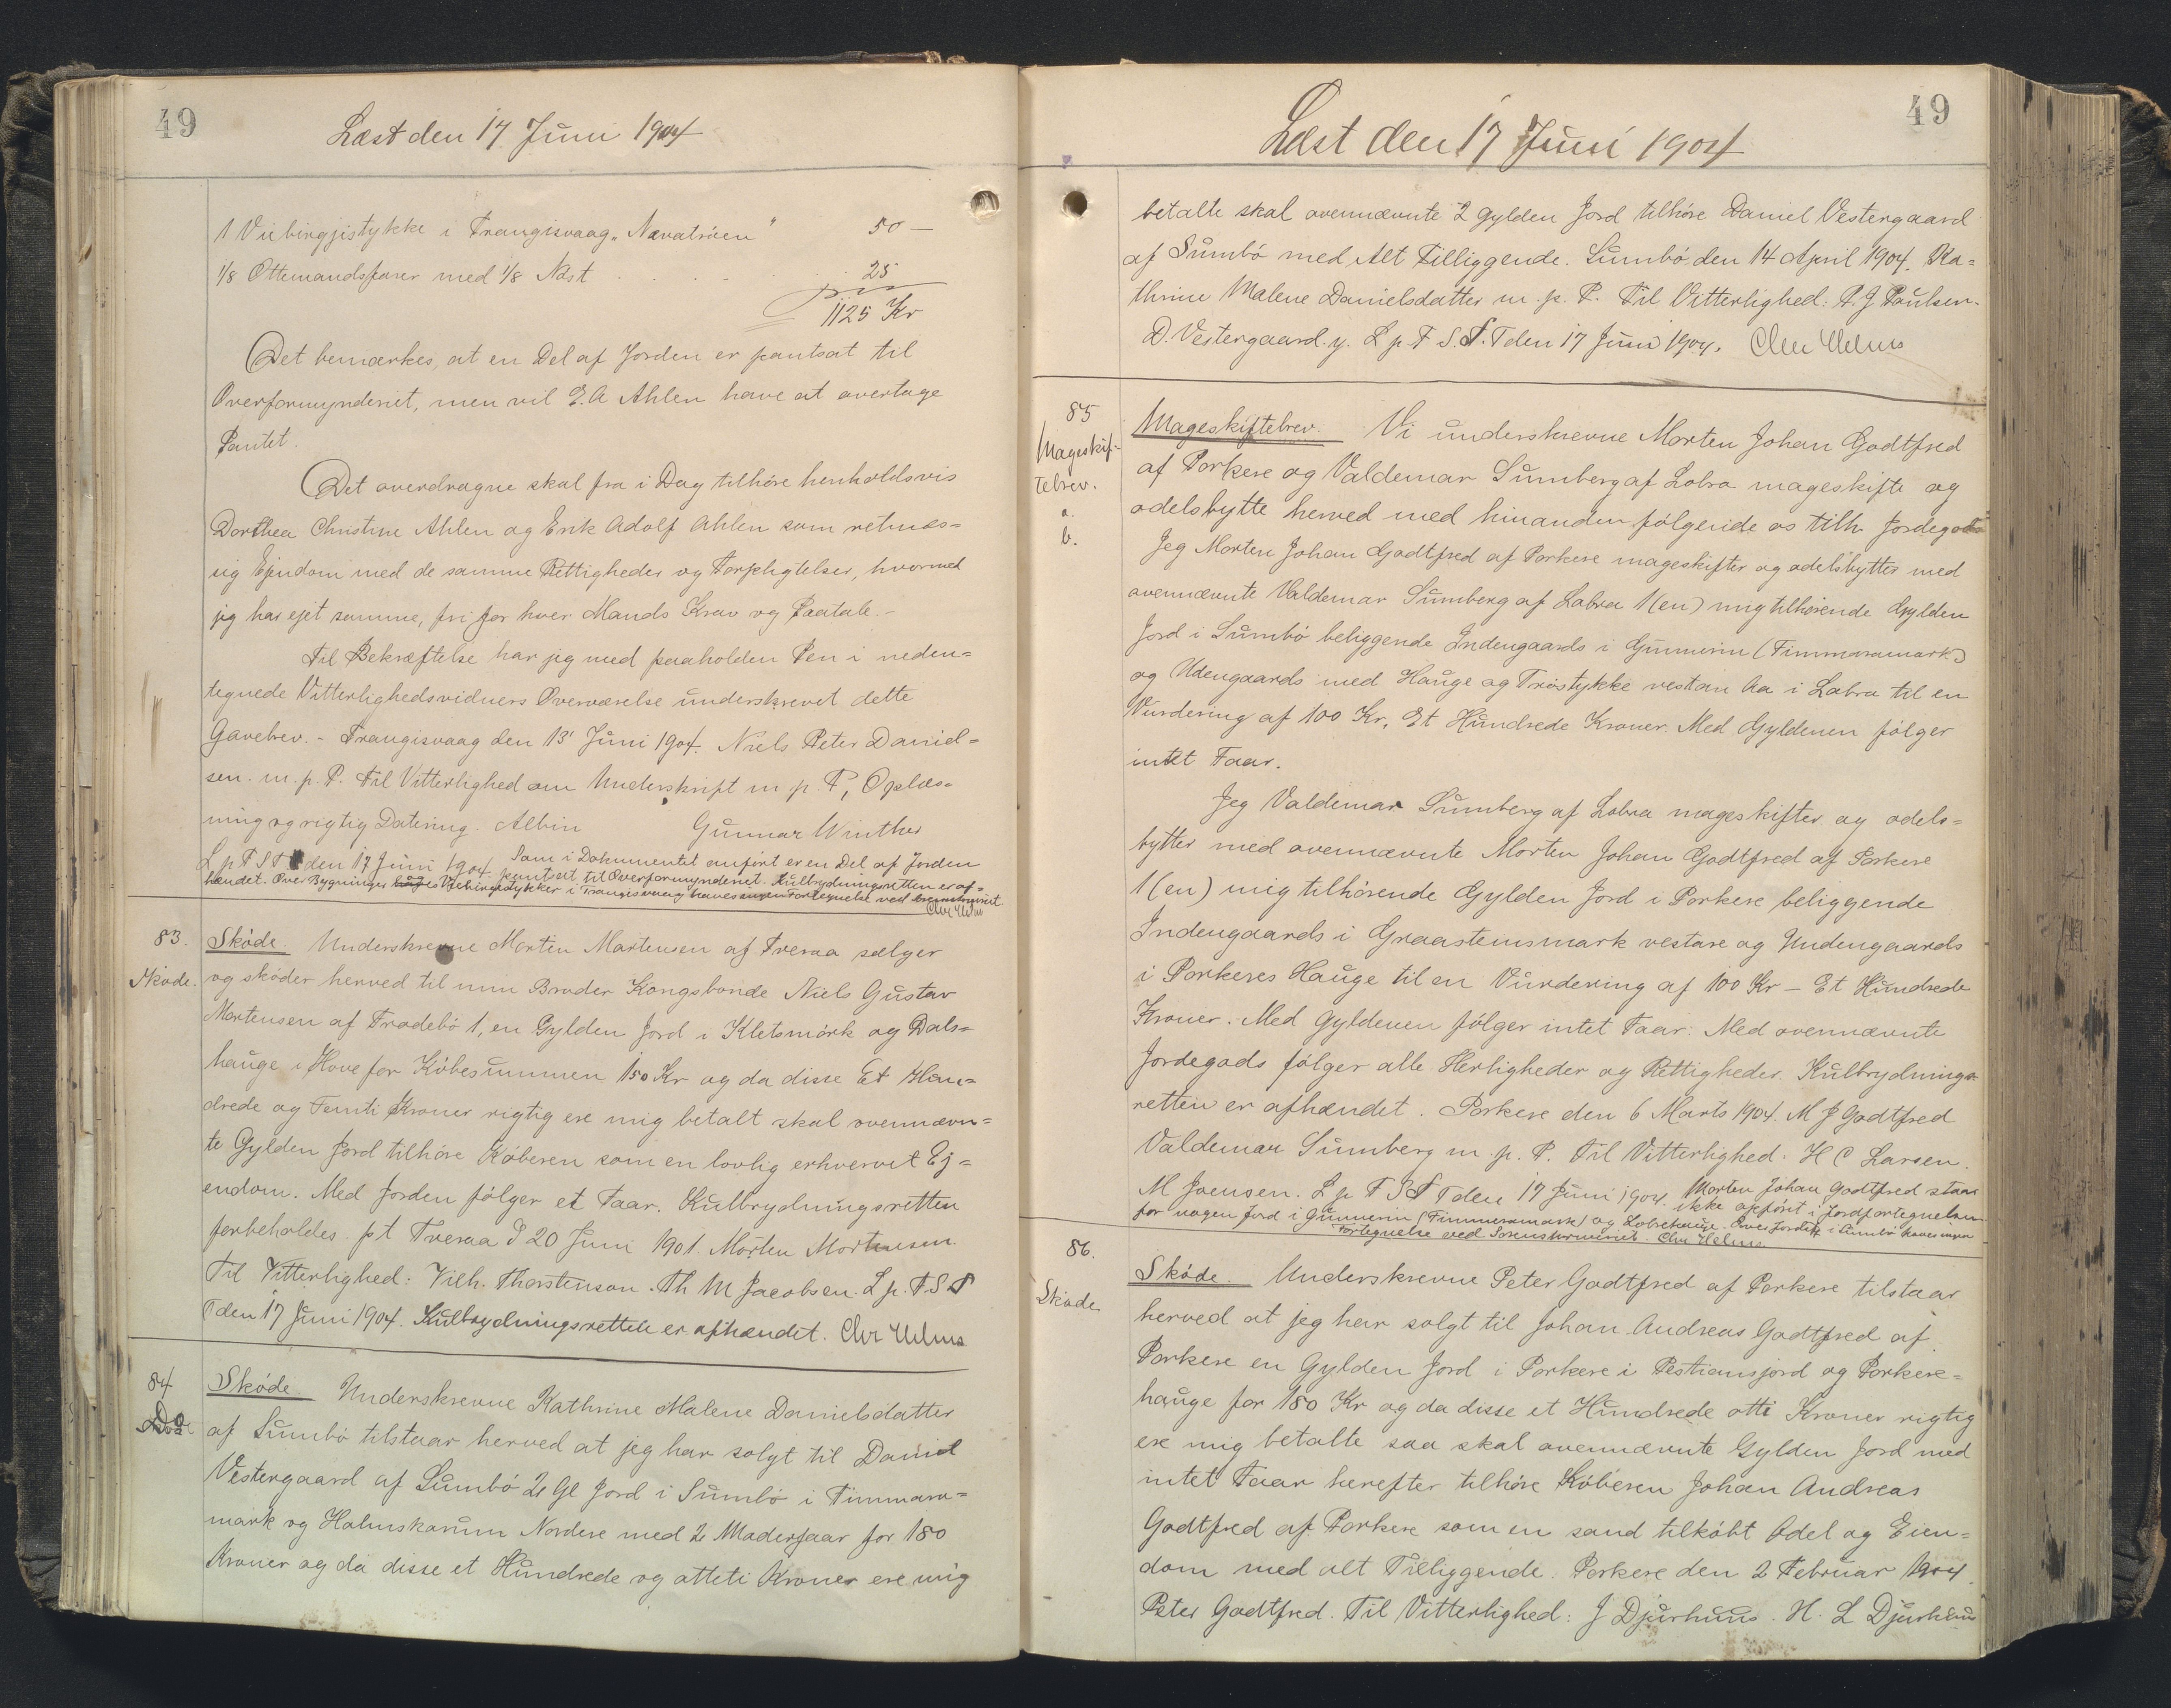 49
Læst den 17 Juni 1904
1 Viebirgjistykke i Trangisvaag „Navatröen" 50 —
1/8 Ottemandsfarer med 1/8 Nöst . . . 25
1125 Kr
Det bemærkes, at en Del af Jorden er pantsat til
Overformynderiet, men vil E. A Ahlen have at overtage
Pantet.
Det overdragne skal fra i Dag tilhöre henholdsvis
Dorthea Christine Ahlen og Erik Adolf Ahlen som retmæs=
sig Ejendom med de samme Rettigheder og Forpligtelser, hvormed
jeg har ejet samme, fri for hver Mands Krav og Paatale.-
Til Bekræftelse har jeg med paaholden Pen i neden=
tegnede Vitterlighedsvidners Overværelse underskrevet dette
Gavebrev. - Trangisvaag den 13' Juni 1904. Niels Peter Daniel=
sen. m. p. P. Til Vitterlighed om Underskrift m p. P, Oplæs=
ning og rigtig Datering. Albin Gunnar Winther
L p T S T den 17 Juni 1904. Som i Dokumentet anfört er en Del af Jorden
pantsat til Overformynderiet. Kulbrydningsretten er af=
hændet. Over Bygninger og Viebirgistykker i Trangisvaag haves ingen Fortegnelse ved Sorenskriveriet.
Chr Helms
83.
Sköde.
Sköde. Underskrevne Morten Mortensen af Tveraa sælger
og sköder herved til min Broder Kongsbonde Niels Gustav
Mortensen af Fradebö 1, en Gylden Jord i Kletsmörk og Dals=
hauge i Hove for Köbesummen 150 Kr og da disse Et Hun=
drede og Femti Kroner rigtig ere mig betalt skal ovennævn=
te Gylden Jord tilhöre Köberen som en lovlig erhvervet Ej=
endom. Med Jorden fölger et Faar. Kulbrydningsretten
forbeholdes. pt Tveraa d 20 Juni 1901. Morten Mortensen.
Til Vitterlighed: Vilh. Thorstenson. Th M Jacobsen. L p. T. S T
den 17 Juni 1904. Kulbrydningsretten er afhændet. Chr Helms
84
Do
Sköde Underskrevne Kathrine Malene Danielsdatter
af Sumbö tilstaar herved at jeg har solgt til Daniel
Vestergaard af Sumbö 2 Gl Jord i Sumbö i Timmara=
mark og Holmskorum Nordere med 2 Moderfaar for 180
Kroner og da disse et Hundrede og otteti Kroner ere mig
49
Læst den 17 Juni 1904
betalte skal ovennævnte 2 Gylden Jord tilhöre Daniel Vestergaard
af Sumbö med Alt Tilliggende. Sumbö, den 14 April 1904. Ka=
thrine Malene Danielsdatter m. p. P. Til Vitterlighed: P. J Poulsen.
D. Vestergaard. y. L p T S. T. den 17 Juni 1904. Chr Helms
85
Mageskif=
tebrev.
a.
b.
Mageskiftebrev. Vi underskrevne Morten Johan Godtfred
af Porkere og Valdemar Sumberg af Lobra mageskifte og
odelsbytte herved med hinanden fölgende os tilh Jordegods
Jeg Morten Johan Godtfred af Porkere mageskifter og odelsbytter med
ovennævnte Valdemar Sumberg af Lobra 1 (en) mig tilhörende Gylden
Jord i Sumbö beliggende Indengaards i Gunnerin (Timmaramark)
og Udengaards med Hauge og Tröstykke vestan Aa i Lobra til en
Vurdering af 100 Kr, Et Hundrede Kroner. Med Gyldenen fölger
intet Faar.
Jeg Valdemar Sumberg af Lobra mageskifter og odels=
bytter med ovennævnte Morten Johan Godtfred af Porkere
1 (en) mig tilhörende Gylden Jord i Porkere beliggende
Indengaards i Graasteinsmark vestare og Undengaards
i Porkeres Hauge til en Vurdering af 100 Kr — Et Hundrede
Kroner. Med Gyldenen fölger intet Faar. Med ovennævnte
Jordegods fölger alle Herligheder og Rettigheder. Kulbrydnings=
retten er afhændet. Porkere den 6 Marts 1904. M J Godtfred
Valdemar Sumberg m. p. P. Til Vitterlighed. H C Larsen.
M Joensen. L p T S T den 17 Juni 1904. Morten Johan Godtfred staar
ikke opfört i Jordfortegnelsen
for nogen Jord i Gunnerin (Timmeramark) og Lobrehauge. Over Jorden i Sumbö haves ingen
Fortegnelse ved Sorenskriveriet. Chr Helms
86.
Sköde
Sköde Underskrevne Peter Godtfred af Porkere tilstaar
herved at jeg har solgt til Johan Andreas Godtfred af
Porkere en Gylden Jord i Porkere i Pestiansjord og Porkere=
hauge for 180 Kr og da disse et Hundrede otti Kroner rigtig
ere mig betalte saa skal ovennævnte Gylden Jord med
intet Faar herefter tilhöre Köberen Johan Andreas
Godtfred af Porkere som en sand tilköbt Odel og Eien=
dom med alt Tilliggende. Porkere den 2 Februar 1904.
Peter Godtfred. Til Vitterlighed: J Djurhuus. H. L Djurhuus